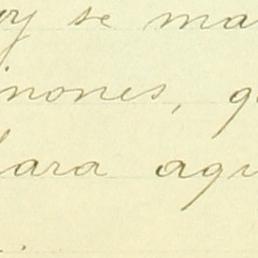 y se ma
inones, q
lara aqu